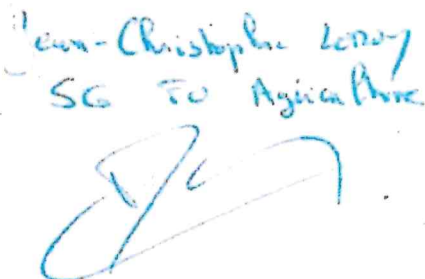 Jean-Christophe Leroy
SG FO Agriculture